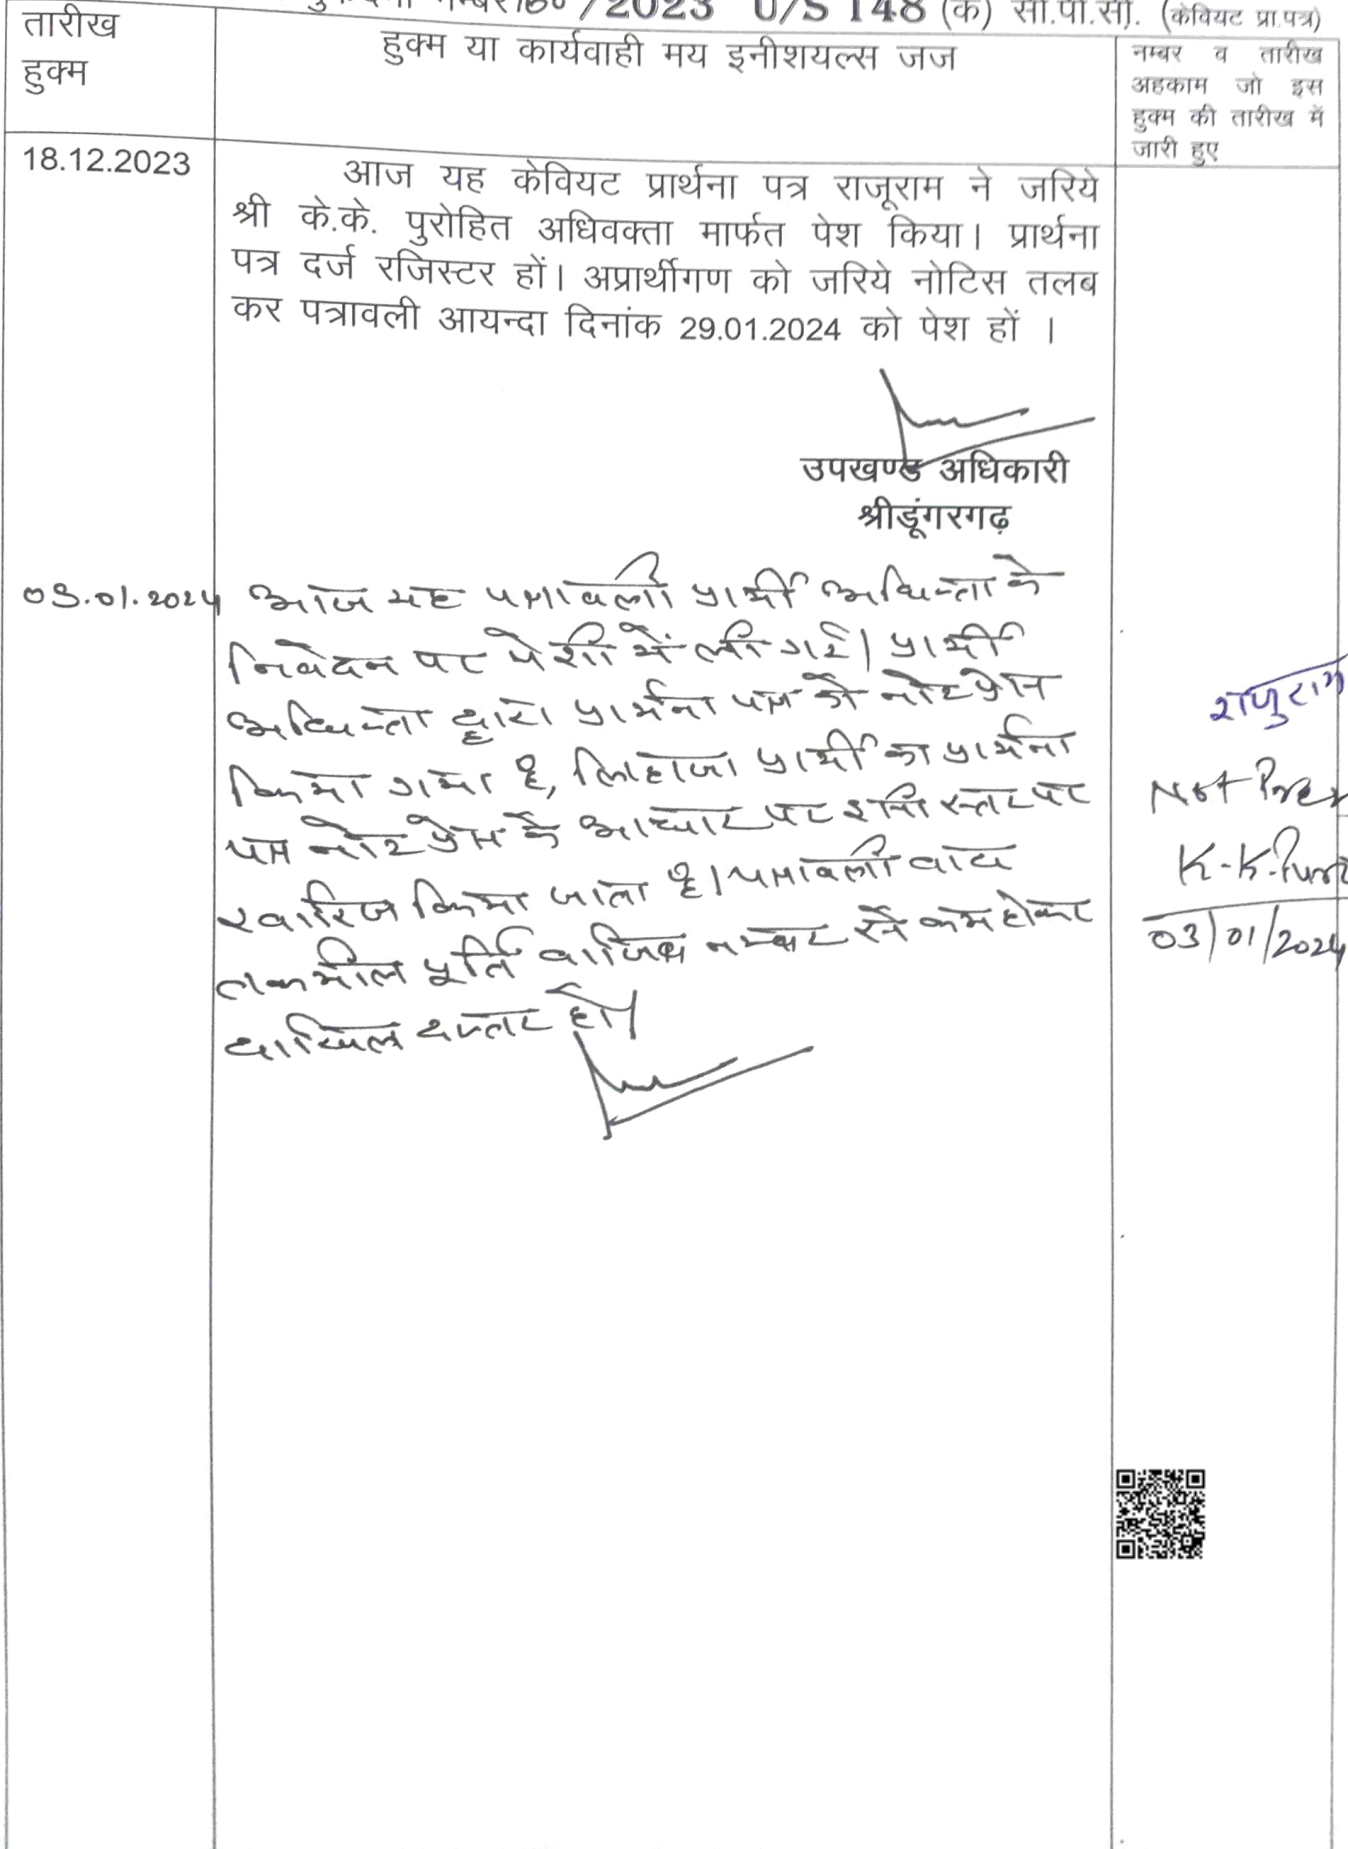 /2023 U/S 148 (क) सी.पी.सी. (केवियट प्रा.पत्र)
तारीख
हुक्म
हुक्म या कार्यवाही मय इनीशयल्स जज
नम्बर व तारीख
अहकाम जो इस
हुक्म की तारीख में
जारी हुए
18.12.2023
आज यह केवियट प्रार्थना पत्र राजूराम ने जरिये
श्री के.के. पुरोहित अधिवक्ता मार्फत पेश किया। प्रार्थना
पत्र दर्ज रजिस्टर हों। अप्रार्थीगण को जरिये नोटिस तलब
कर पत्रावली आयन्दा दिनांक 29.01.2024 को पेश हों ।
उपखण्ड अधिकारी
श्रीडूंगरगढ़
03.01.2024 आज यह पत्रावली प्रार्थी अधिवक्ता के
निवेदन पर पेशी में ली गई। प्रार्थी
अधिवक्ता द्वारा प्रार्थना पत्र को नोट प्रेस
किया गया है, लिहाजा प्रार्थी का प्रार्थना
पत्र नोट प्रेस के आधार पर इसी स्तर पर
खारिज किया जाता है। पत्रावली बाद
तकमील पूर्ति वाजिब नम्बर से कम होकर
दाखिल दफ्तर हो।
राजुराम
Not Press
K.K.
03/01/2024